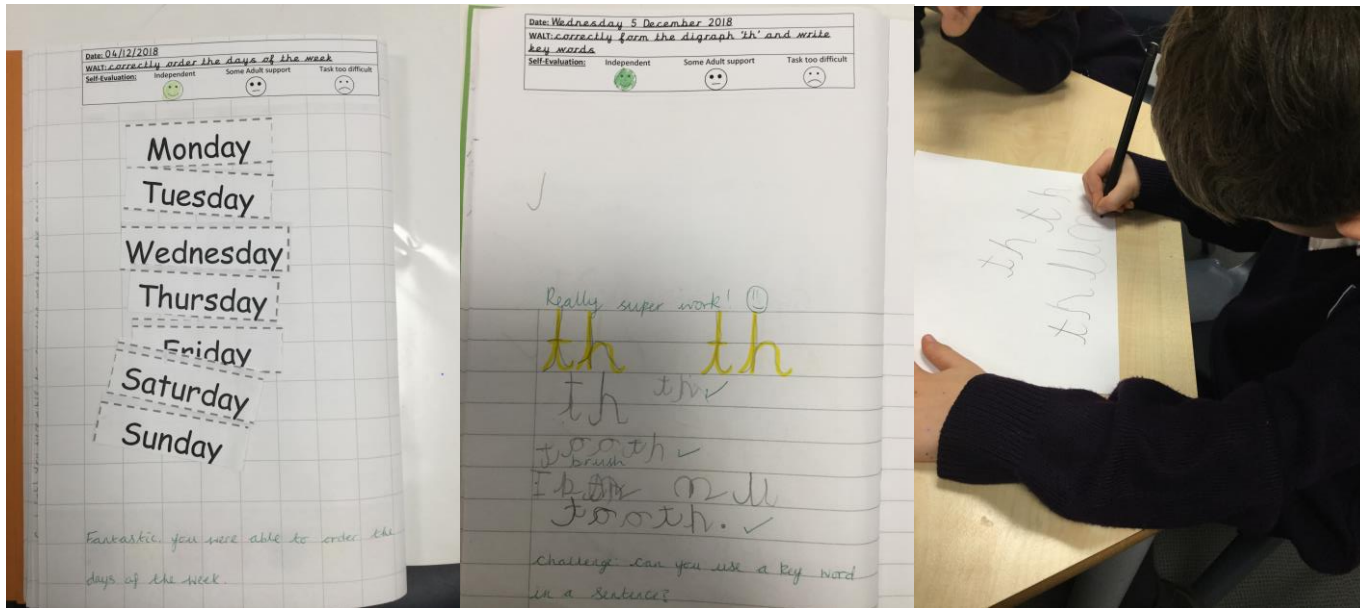 Date: 04/12/2018
WALT: correctly order the days of the week
Self-Evaluation: Independent Some Adult support Task too difficult
Monday
Tuesday
Wednesday
Thursday
Friday
Saturday
Sunday
Fantastic, you were able to order the
days of the week.
Date: Wednesday 5 December 2018
WALT: correctly form the digraph 'th' and write
key words
Self-Evaluation: Independent Some Adult support Task too difficult
J
Really super work!
th th
th th
tooth
brush
I
tooth.
challenge: can you use a key word
in a sentence?
th th
th